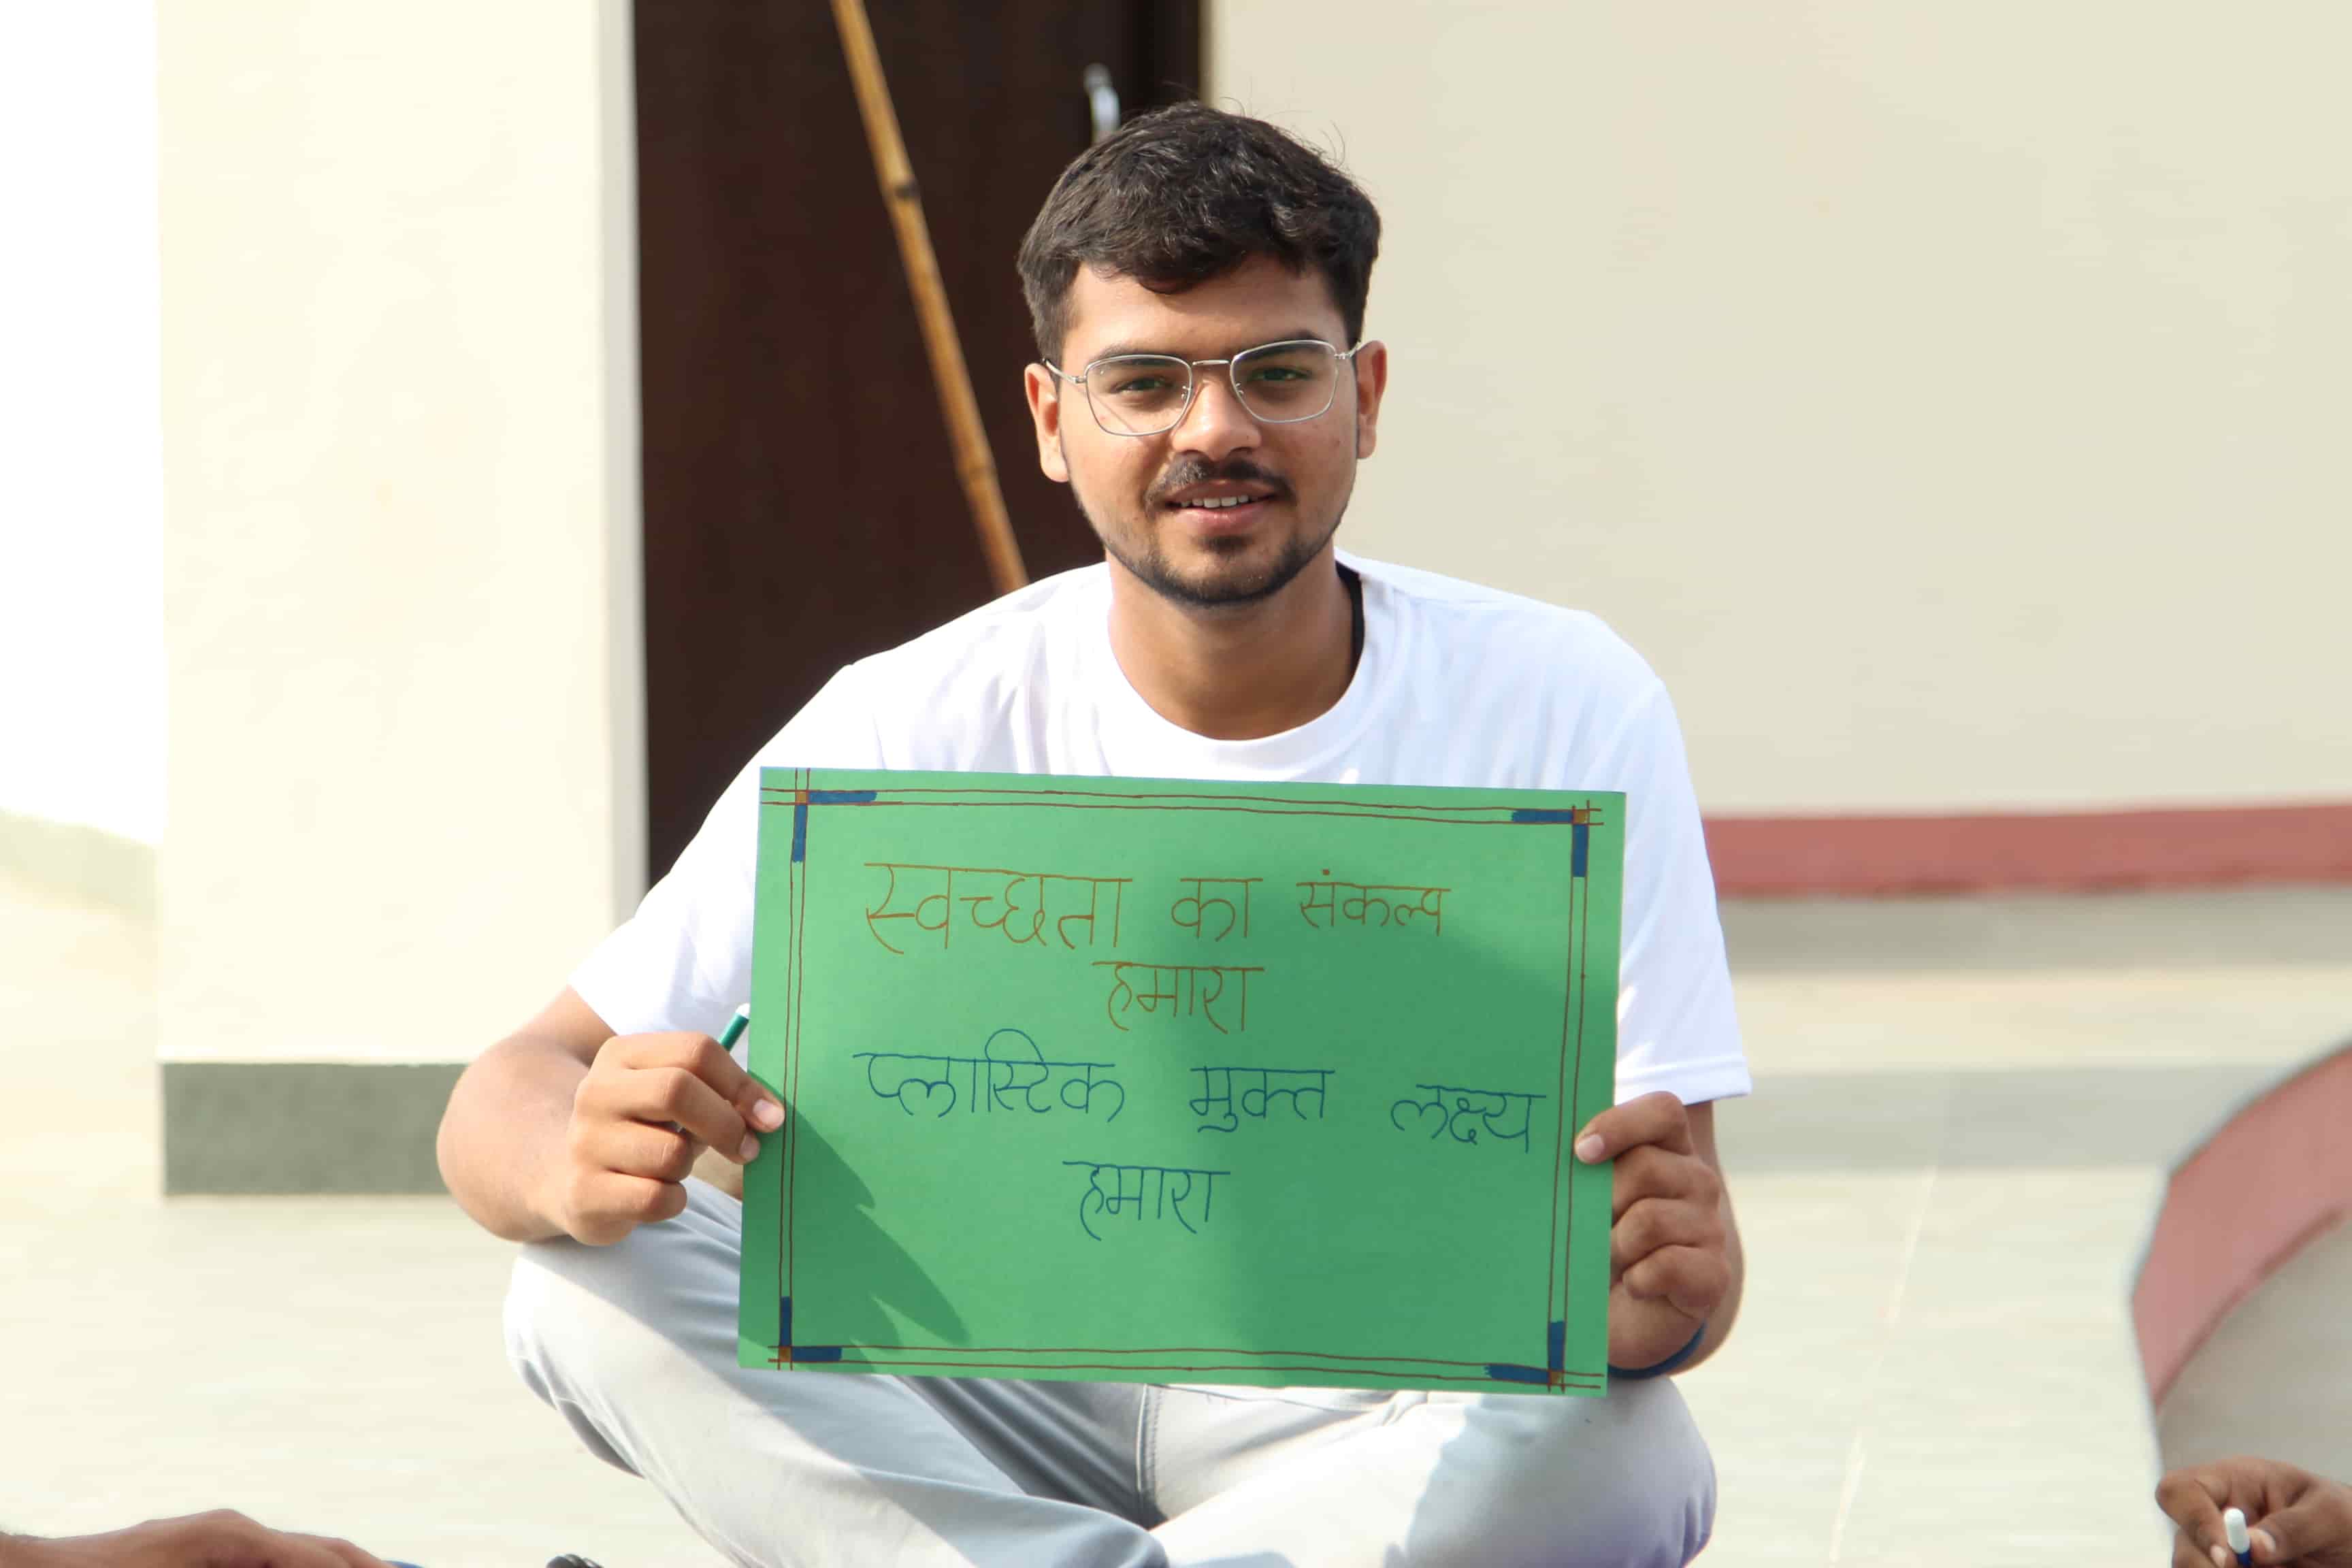 स्वच्छता का संकल्प
हमारा
प्लास्टिक मुक्त लक्ष्य
हमारा